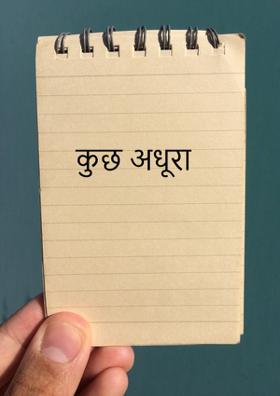 कुछ अधूरा